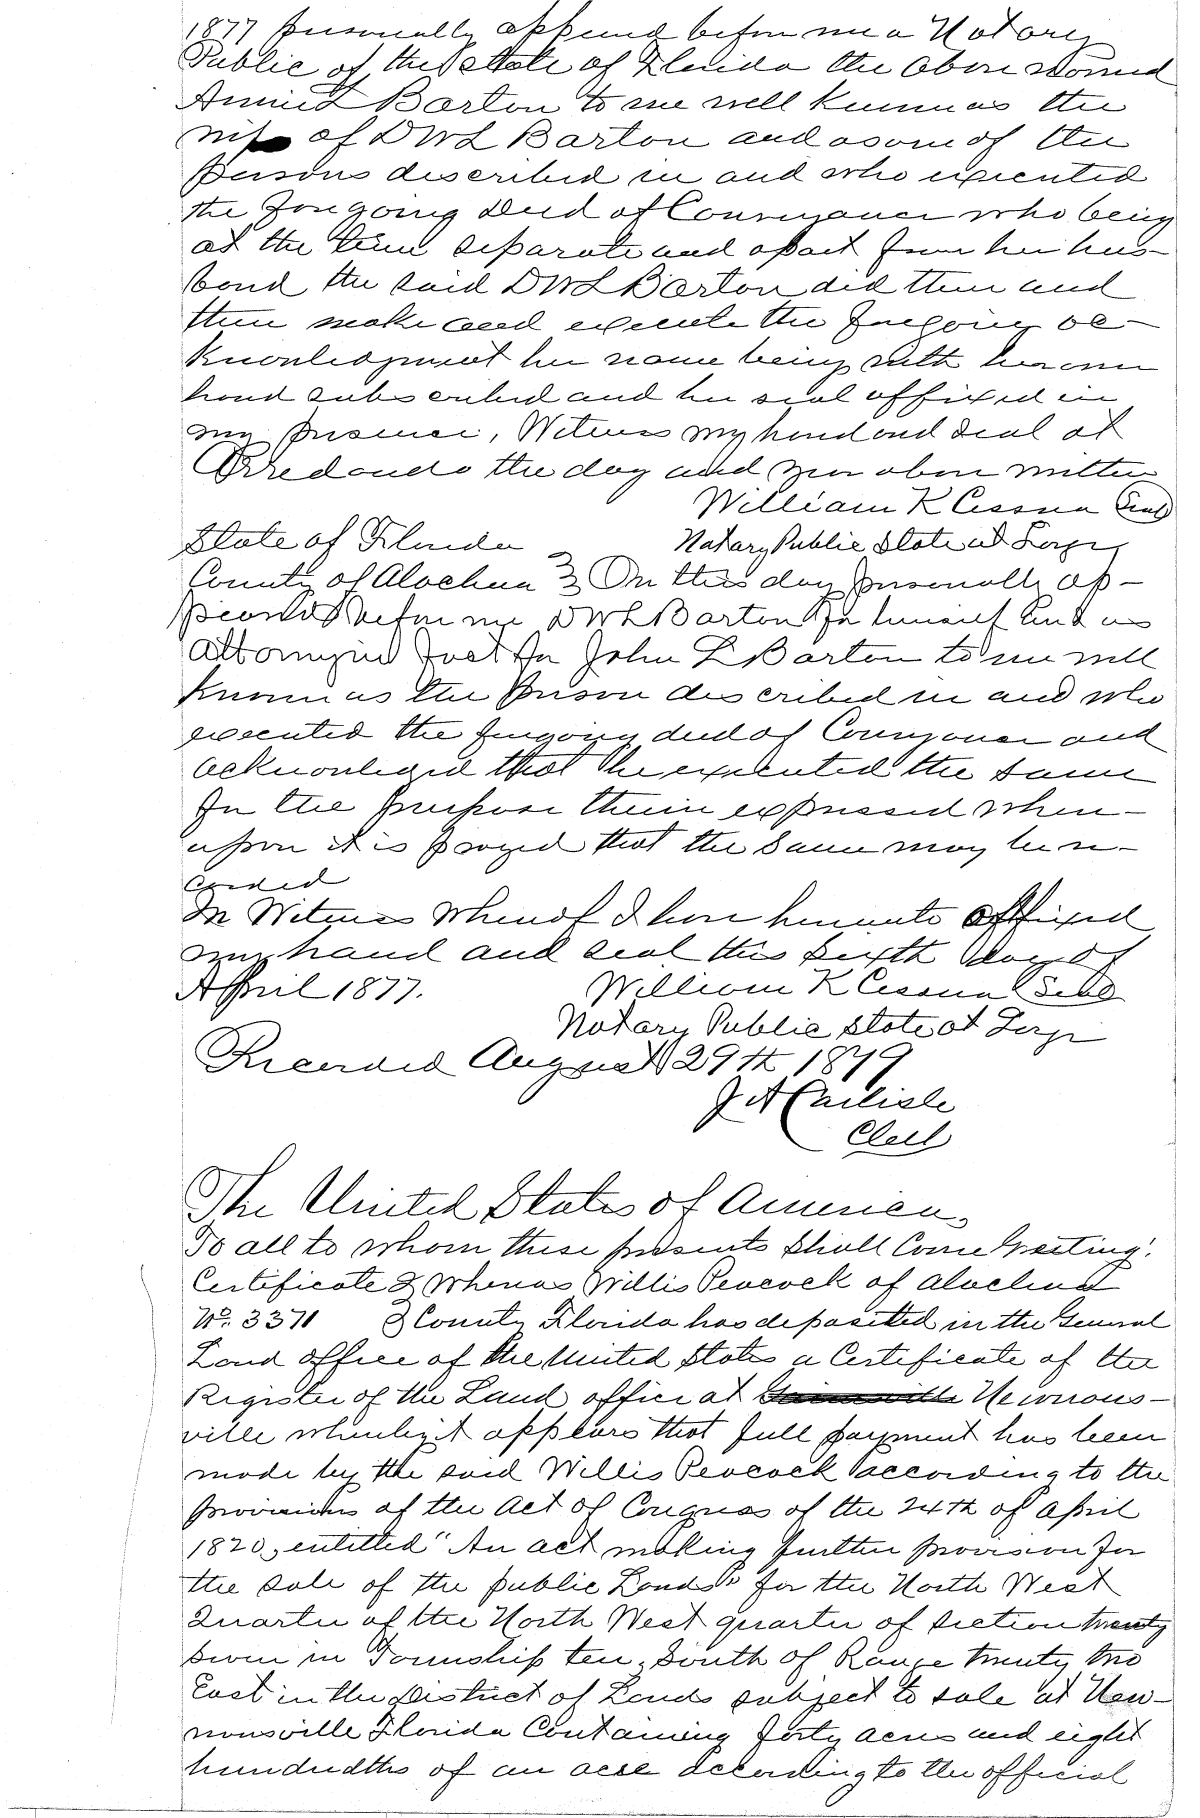 1877 personally appeared before me a Notary
Public of the State of Florida the above named
Annie L Barton to me well known as the
wife of DWL Barton and as one of the
persons described in and who executed
the foregoing Deed of Conveyance who being
at the time separate and apart from her hus-
band the said DWL Barton did then and
there make and execute the foregoing ac-
knowledgment her name being with her own
hand subscribed and her seal affixed in
my presence, Witness my hand and seal at
Arredondo the day and year above written
William K Cessna Seal
State of Florida Notary Public State at Large
County of Alachua } On this day personally ap-
peared before me DWL Barton for himself and as
Attorney in fact for John L Barton to me well
known as the person described in and who
executed the foregoing deed of Conveyance and
acknowledged that he executed the same
for the purpose therein expressed where-
upon it is prayed that the same may be re-
corded
In Witness Whereof I have hereunto affixed
my hand and seal this sixth day of
April 1877. William K Cessna Seal
Notary Public State at Large
Recorded August 29th 1879
J A Carlisle
Clerk
The United States of America,
To all to whom these presents shall Come Greeting!
Certificate } Whereas Willis Peacock of Alachua
No. 3371 } County Florida has deposited in the General
Land office of the United States a Certificate of the
Register of the Land office at Newnans-
ville whereby it appears that full payment has been
made by the said Willis Peacock according to the
provisions of the Act of Congress of the 24th of April
1820, entitled "An act making further provision for
the sale of the public Lands" for the North West
Quarter of the North West quarter of section twenty
seven in Township ten, South of Range twenty two
East in the District of Lands subject to sale at New-
nansville Florida Containing forty acres and eight
hundredths of an acre according to the official